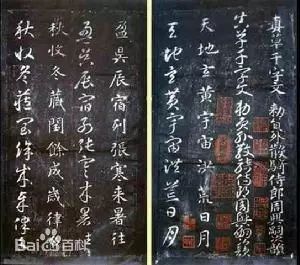 真草千字文 勅員外散騎侍郎周興嗣次韻
真草千字文 勅員外散騎侍郎周興嗣次韻
天地玄黃宇宙洪荒日月
天地玄黃宇宙洪荒日月
盈昃辰宿列張寒來暑往
盈昃辰宿列張寒來暑往
秋收冬藏閏餘成歲律
秋收冬藏閏餘成歲律
Bai百科